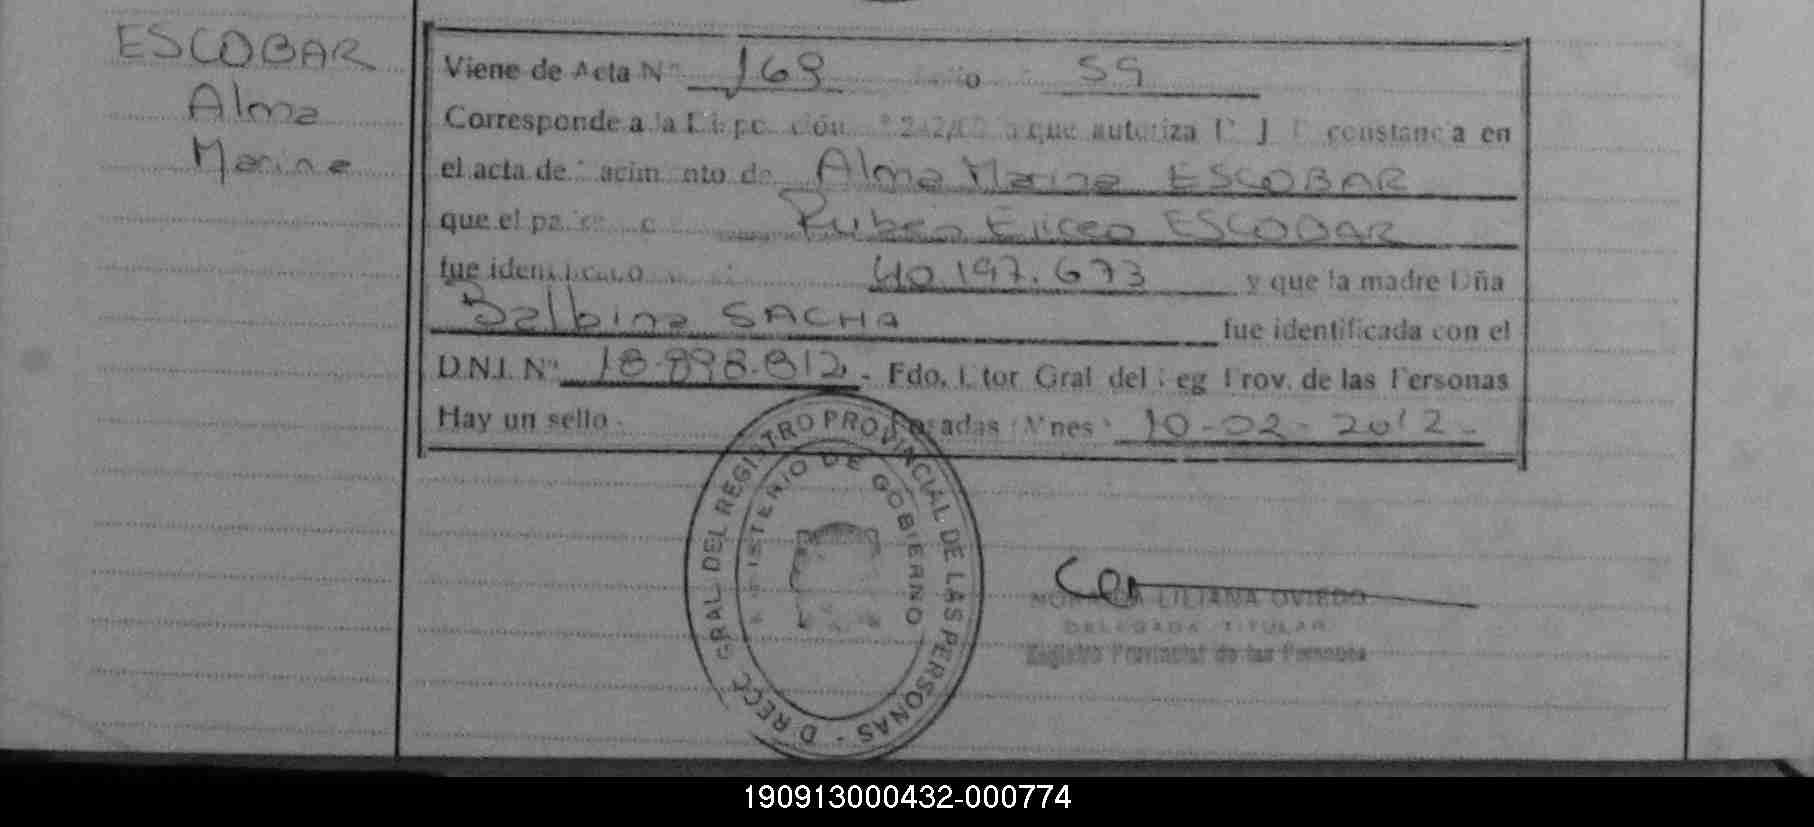 ESCOBAR
Alma
Marina
Viene de Acta Nº 169 59
Corresponde a la que autoriza constancia en
el acta de nacimiento de Alma Marina ESCOBAR
que el padre Ruben Eliceo ESCOBAR
fue identificado 40.197.673 y que la madre Dña
Balbina SACHA fue identificada con el
D.N.I. Nº 18.898.812 - Fdo. Dtor Gral del Reg Prov. de las Personas
Hay un sello - Posadas (Mnes) 10-02-2012-
DIRECC. GRAL. DEL REGISTRO PROVINCIAL DE LAS PERSONAS -
MINISTERIO DE GOBIERNO
LILIANA OVIEDO
DELEGADA TITULAR
Registro Provincial de las Personas
190913000432-000774